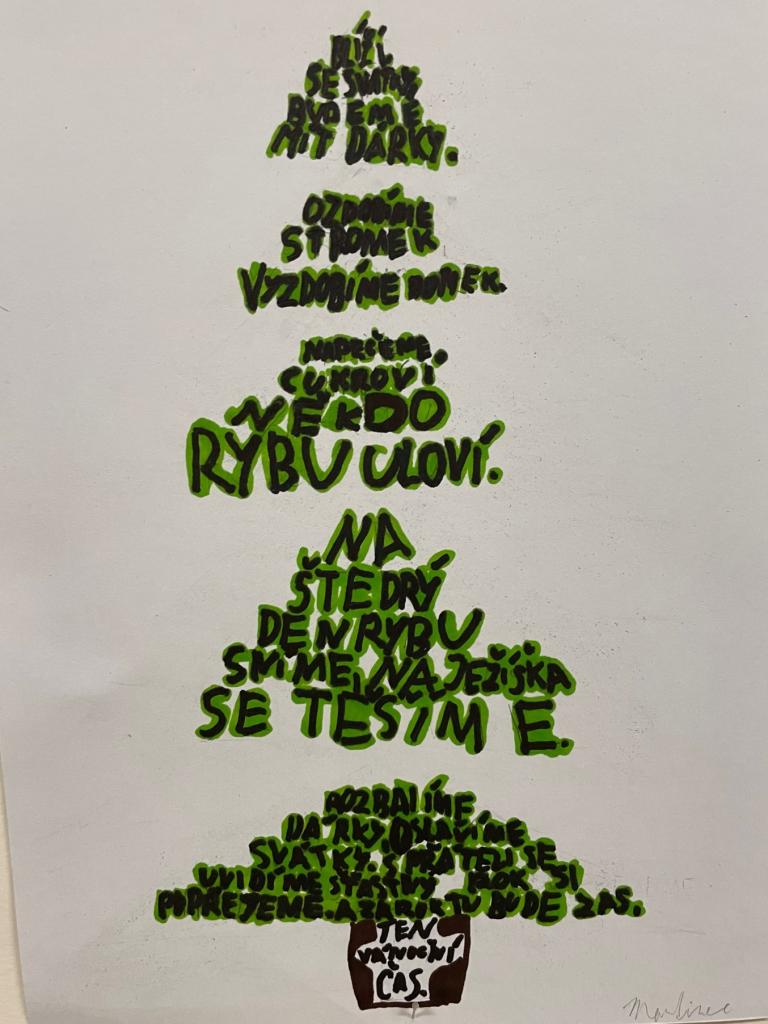 BLÍŽÍ
SE SVÁTKY
BUDEME
MÍT DÁRKY.
OZDOBÍME
STROMEK
VYZDOBÍME DOMEK.
NAPEČEME
CUKROVÍ
NĚKDO
RYBU ULOVÍ.
NA
ŠTĚDRÝ
DEN RYBU
SNÍME, NA JEŽÍŠKA
SE TĚŠÍME.
ROZBALÍME
DÁRKY, OSLAVÍME
SVÁTKY. S PŘÁTELI SE
UVIDÍME ŠŤASTNÝ ROK SI
POPŘEJEME. A ZA ROK TU BUDE ZAS.
TEN
VÁNOČNÍ
ČAS.